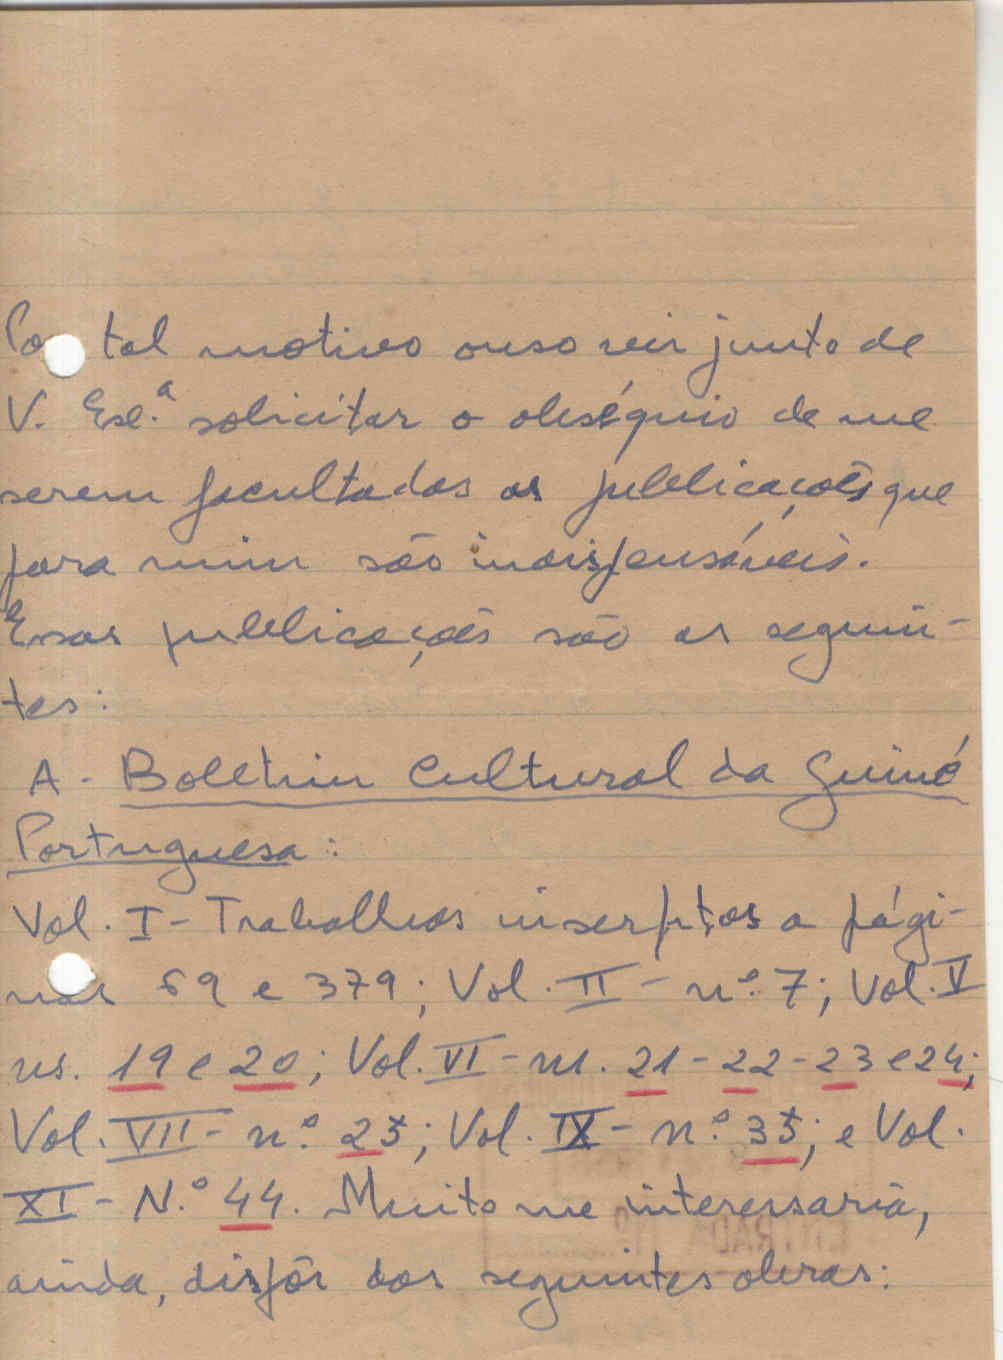 Por tal motivo ouso vir junto de
V. Exl.ª solicitar o obséquio de me
serem facultadas as publicações que
para mim são indispensáveis.
Essas publicações são as seguin-
tes:
A - Boletim Cultural da Guiné
Portuguesa:
Vol. I - Trabalhos inserptos a pági-
nas 69 e 379; Vol. II - n.º 7; Vol. V
ns. 19 e 20; Vol. VI - ns. 21 - 22 - 23 e 24;
Vol. VII - n.º 25; Vol. IX - n.º 35; e Vol.
XI - N.º 44. Muito me interessaria,
ainda, dispôr das seguintes obras: